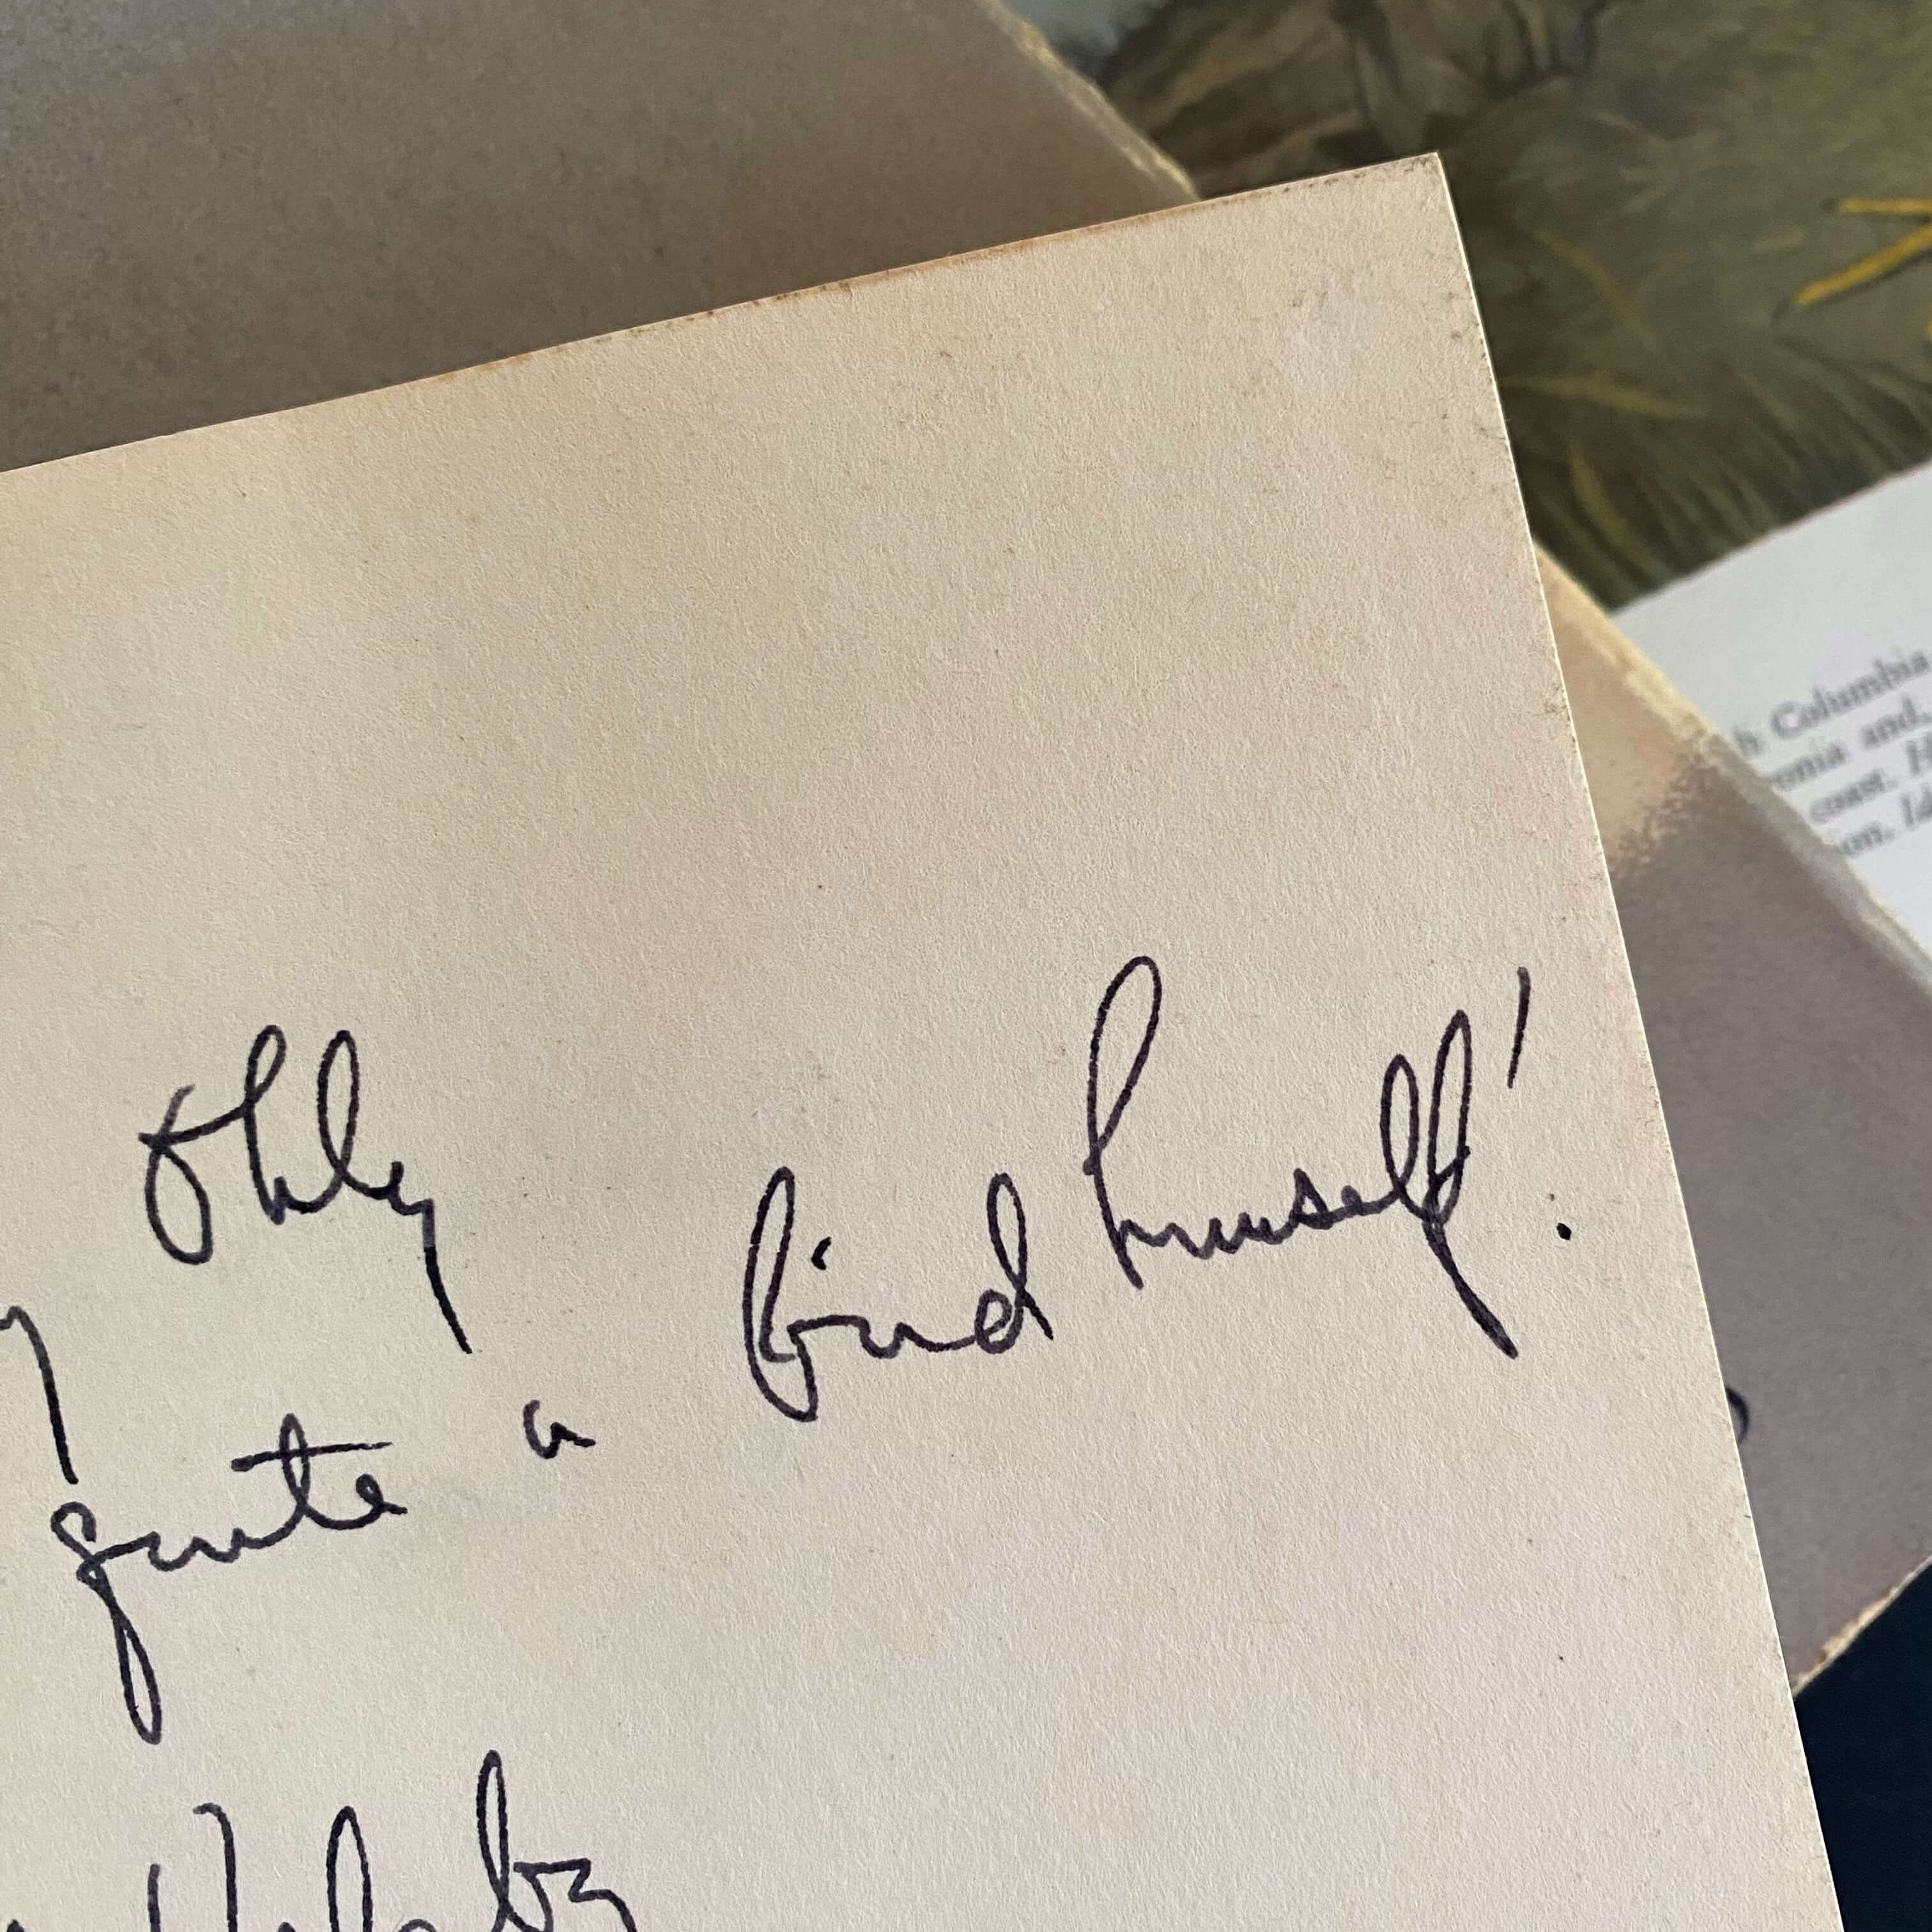 Ohly
quite a bird himself!
h Columbia
ornia and
coast. H
on. Id